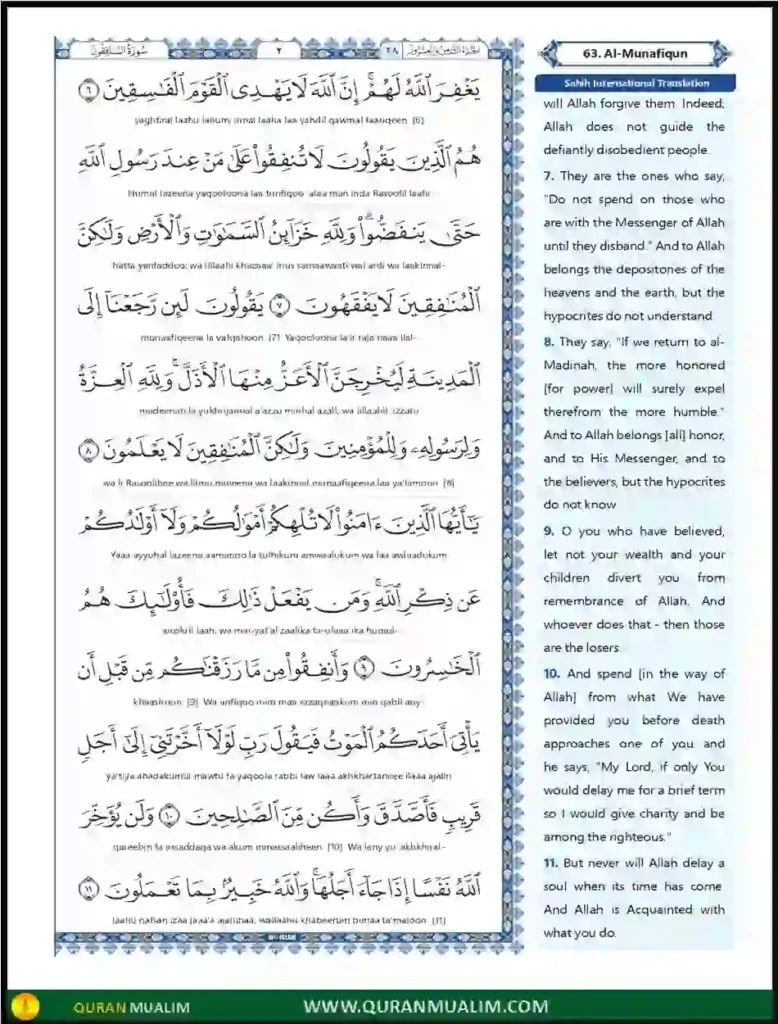 سُورَةُ المُنَافِقُونَ
٢
الجُزْءُ الثَّامِنُ وَالعِشْرُونَ
٢٨
يَغْفِرَ ٱللَّهُ لَهُمْ ۚ إِنَّ ٱللَّهَ لَا يَهْدِى ٱلْقَوْمَ ٱلْفَـٰسِقِينَ ٦
yaghfiral laahu lahum; innal laaha laa yahdil qawmal faasiqeen [6]
هُمُ ٱلَّذِينَ يَقُولُونَ لَا تُنفِقُوا۟ عَلَىٰ مَنْ عِندَ رَسُولِ ٱللَّهِ
Humul lazeena yaqooloona laa tunfiqoo 'alaa man inda Rasoolil laahi
حَتَّىٰ يَنفَضُّوا۟ ۗ وَلِلَّهِ خَزَآئِنُ ٱلسَّمَـٰوَٰتِ وَٱلْأَرْضِ وَلَـٰكِنَّ
hatta yanfaddoo; wa lillaahi khazaaa' inus samaawaati wal ardi wa laakinnal-
ٱلْمُنَـٰفِقِينَ لَا يَفْقَهُونَ ٧ يَقُولُونَ لَئِن رَّجَعْنَآ إِلَى
munaafiqeena la yafqahoon [7] Yaqooloona la'ir raja'naaa ilal-
ٱلْمَدِينَةِ لَيُخْرِجَنَّ ٱلْأَعَزُّ مِنْهَا ٱلْأَذَلَّ ۚ وَلِلَّهِ ٱلْعِزَّةُ
madeenati la yukhrijannal a'azzu minhal azall; wa lillaahil 'izzatu
وَلِرَسُولِهِۦ وَلِلْمُؤْمِنِينَ وَلَـٰكِنَّ ٱلْمُنَـٰفِقِينَ لَا يَعْلَمُونَ ٨
wa li Rasoolihee wa lilmu'mineena wa laakinnal munaafiqeena laa ya'lamoon [8]
يَـٰٓأَيُّهَا ٱلَّذِينَ ءَامَنُوا۟ لَا تُلْهِكُمْ أَمْوَٰلُكُمْ وَلَآ أَوْلَـٰدُكُمْ
Yaaa ayyuhal lazeena aamanoo la tulhikum amwaalukum wa laa awlaadukum
عَن ذِكْرِ ٱللَّهِ ۚ وَمَن يَفْعَلْ ذَٰلِكَ فَأُو۟لَـٰٓئِكَ هُمُ
'anzikril laah; wa mai-yaf'al zaalika fa-ulaaa'ika humul-
ٱلْخَـٰسِرُونَ ٩ وَأَنفِقُوا۟ مِن مَّا رَزَقْنَـٰكُم مِّن قَبْلِ أَن
khaasiroon [9] Wa anfiqoo mim maa razaqnaakum min qabli any-
يَأْتِىَ أَحَدَكُمُ ٱلْمَوْتُ فَيَقُولَ رَبِّ لَوْلَآ أَخَّرْتَنِىٓ إِلَىٰٓ أَجَلٍ
ya'tiya ahadakumul mawtu fa yaqoola rabbi law laaa akhkhartaneee ilaaa ajalin
قَرِيبٍ فَأَصَّدَّقَ وَأَكُن مِّنَ ٱلصَّـٰلِحِينَ ١٠ وَلَن يُؤَخِّرَ
qareebin fa assaddaqa wa akum minassaaliheen [10] Wa lany yu 'akhkhiral-
ٱللَّهُ نَفْسًا إِذَا جَآءَ أَجَلُهَا ۚ وَٱللَّهُ خَبِيرٌۢ بِمَا تَعْمَلُونَ ١١
laahu nafsan izaa jaaa'a ajaluhaa; wallaahu khabeerum bimaa ta'maloon [11]
63. Al-Munafiqun
Sahih International Translation
will Allah forgive them. Indeed,
Allah does not guide the
defiantly disobedient people.
7. They are the ones who say,
"Do not spend on those who
are with the Messenger of Allah
until they disband." And to Allah
belongs the depositories of the
heavens and the earth, but the
hypocrites do not understand.
8. They say, "If we return to al-
Madinah, the more honored
[for power] will surely expel
therefrom the more humble."
And to Allah belongs [all] honor,
and to His Messenger, and to
the believers, but the hypocrites
do not know
9. O you who have believed,
let not your wealth and your
children divert you from
remembrance of Allah. And
whoever does that - then those
are the losers
10. And spend [in the way of
Allah] from what We have
provided you before death
approaches one of you and
he says, "My Lord, if only You
would delay me for a brief term
so I would give charity and be
among the righteous."
11. But never will Allah delay a
soul when its time has come.
And Allah is Acquainted with
what you do.
QURAN MUALIM
WWW.QURANMUALIM.COM